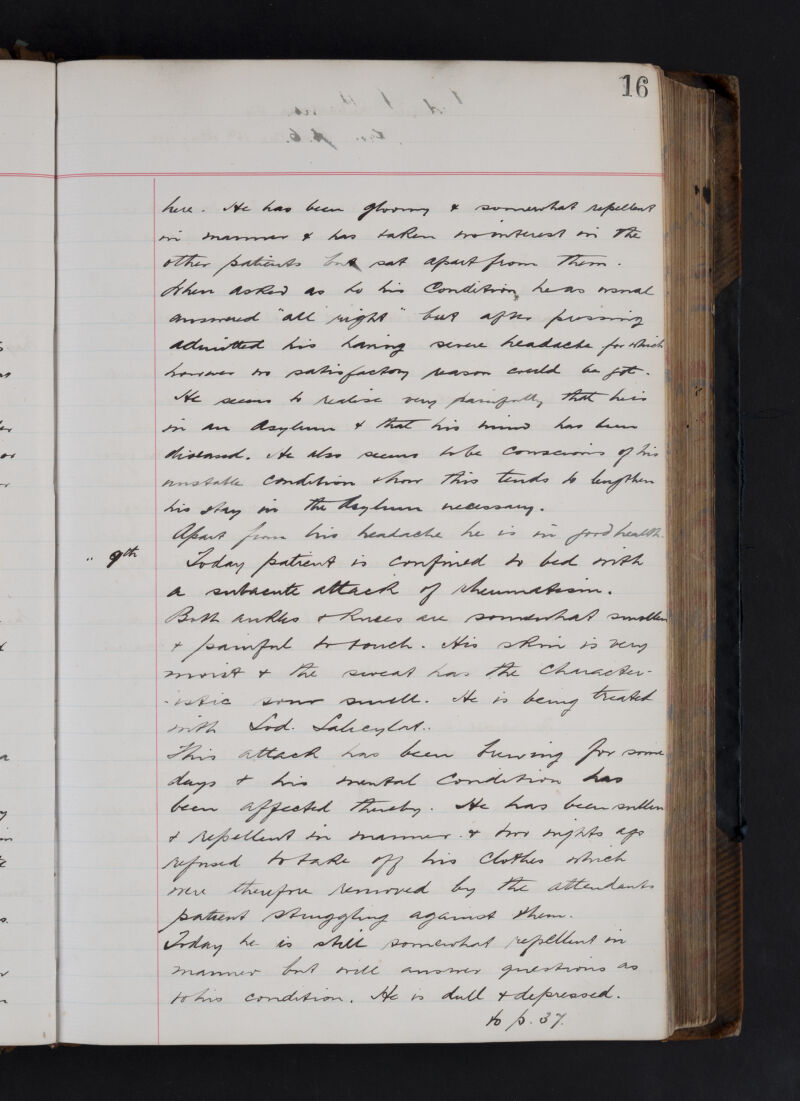 16
here. He has been gloomy & somewhat repellent
in manner & has taken no interest in the
other patients but sat apart from them.
When asked as to his condition, he as usual
answered "all right" but after pressing
admitted his having severe headache for which
however no satisfactory reason could be got.
He seems to realise very painfully that he is
in an Asylum & that his mind has been
diseased. He also seems to be conscious of his
unstable condition & how this tends to lengthen
his stay in the Asylum necessary.
Apart from his headache he is in good health.
" 9th Today patient is confined to bed with
a subacute attack of rheumatism.
Both ankles & knees are somewhat swollen
& painful to touch. His skin is very
moist & the sweat has the character-
-istic sour smell. He is being treated
with Sod. Salicylat.
This attack has been brewing for some
days & his mental condition has
been affected thereby. He has been sullen
& repellent in manner & two nights ago
refused to take off his clothes which
were therefore removed by the attendants
patient struggling against them.
Today he is still somewhat repellent in
manner but will answer questions as
to his condition. He is dull & depressed.
to p. 37.